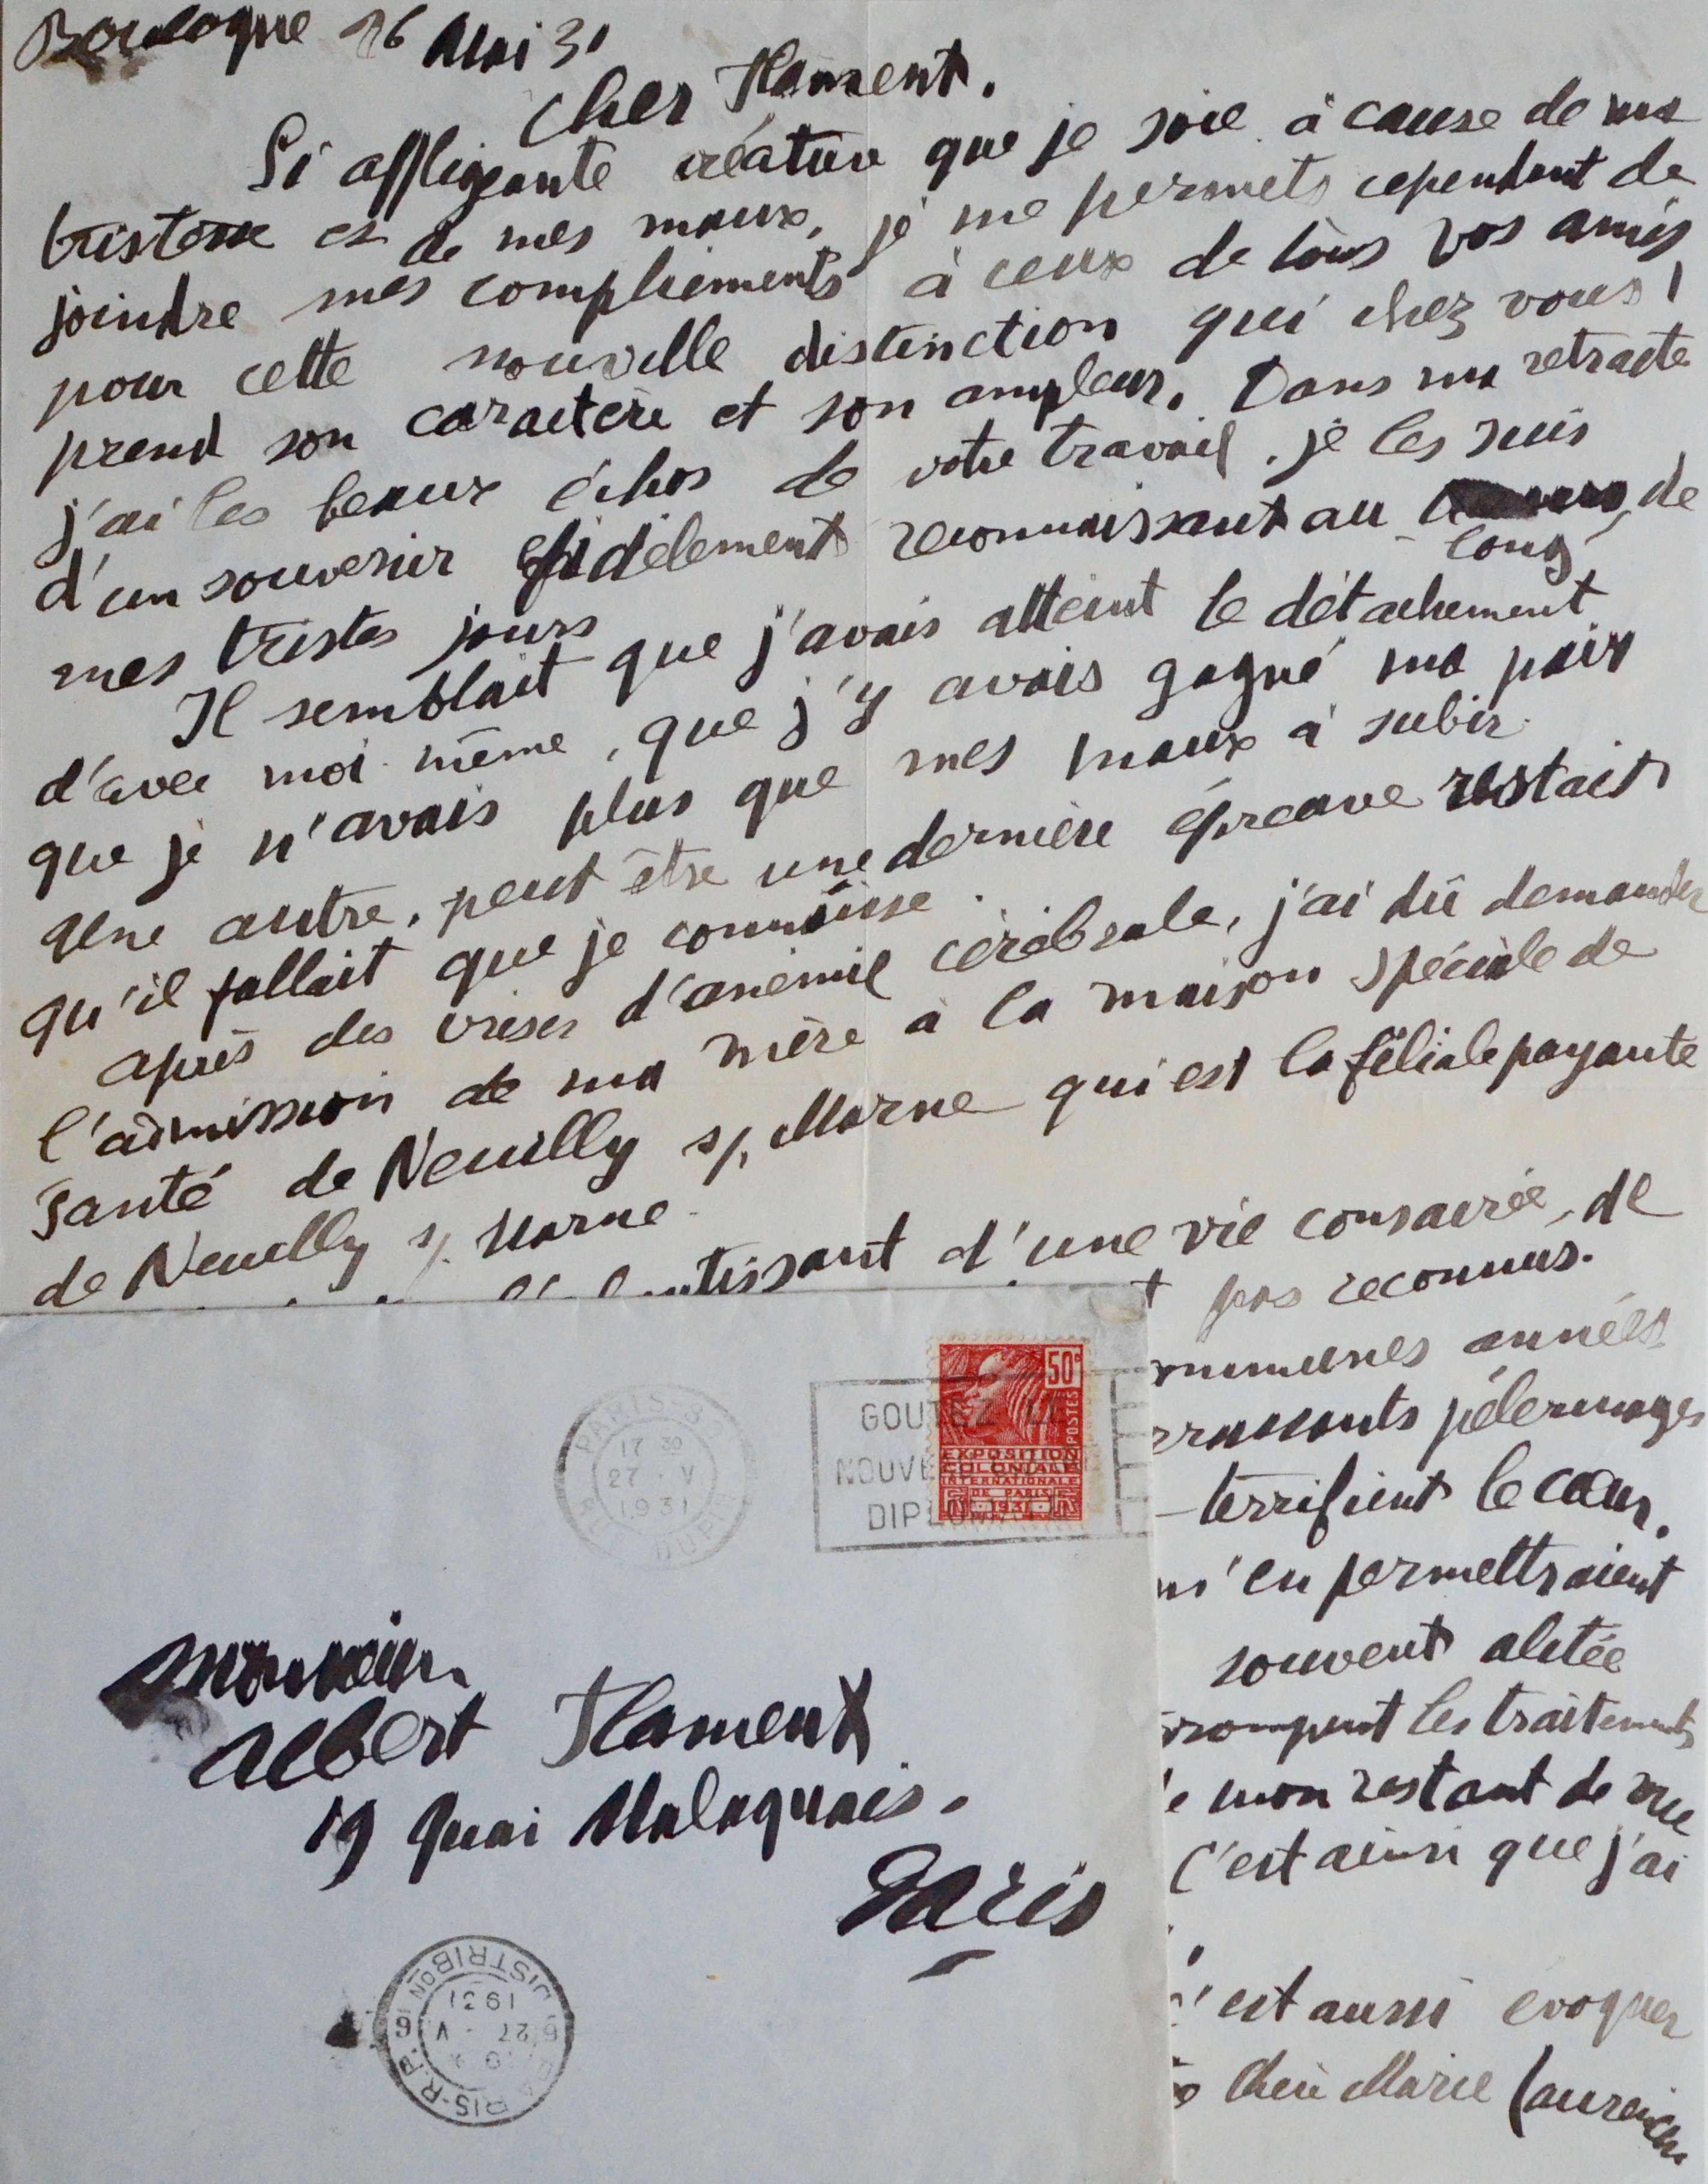 Boulogne 26 Mai 31
Cher Flament.
Si affligeante créature que je soie à cause de ma
tristesse et de mes maux, je me permets cependant de
joindre mes compliments à ceux de tous vos amis
pour cette nouvelle distinction qui chez vous
prend son caractère et son ampleur. Dans ma retraite
j'ai les beaux échos de votre travail. je les suis
d'un souvenir fidèlement reconnaissant au long de
mes tristes jours
Il semblait que j'avais atteint le détachement
d'avec moi même, que j'y avais gagné ma paix
que je n'avais plus que mes maux à subir.
Une autre, peut être une dernière épreuve restait
qu'il fallait que je connaisse.
après des crises d'anémie cérébrale, j'ai dû demander
l'admission de ma mère à la maison spéciale de
santé de Neuilly s/ Marne qui est la filiale payante
de Neuilly s/ Marne.
d'une vie consacrée, de
pas reconnus.
années
pélerinages
terrifient le cœur.
m'en permettraient
souvent alitée
les traitements
mon restant de vie
C'est ainsi que j'ai
c'est aussi évoquer
Marie Laurencin
PARIS-80
17 30
27 V
1931
R. DUPIN
GOUTEZ LE
NOUVE
DIPLOMATE
50c
POSTES
EXPOSITION
COLONIALE
INTERNATIONALE
DE PARIS
1931
Monsieur
Albert Flament
19 Quai Malaquais.
Paris
PARIS-R.P.
DISTRIBON
27 - V
1931